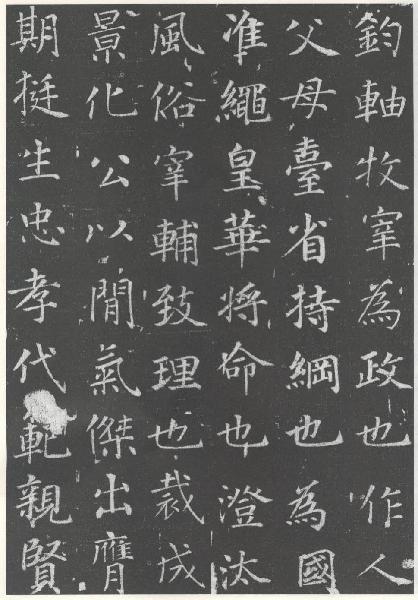 鈞軸牧宰為政也作人
父母臺省持綱也為國
准繩皇華將命也澄汰
風俗宰輔致理也裁成
景化公以閒氣傑出膺
期挺生忠孝代軌親賢